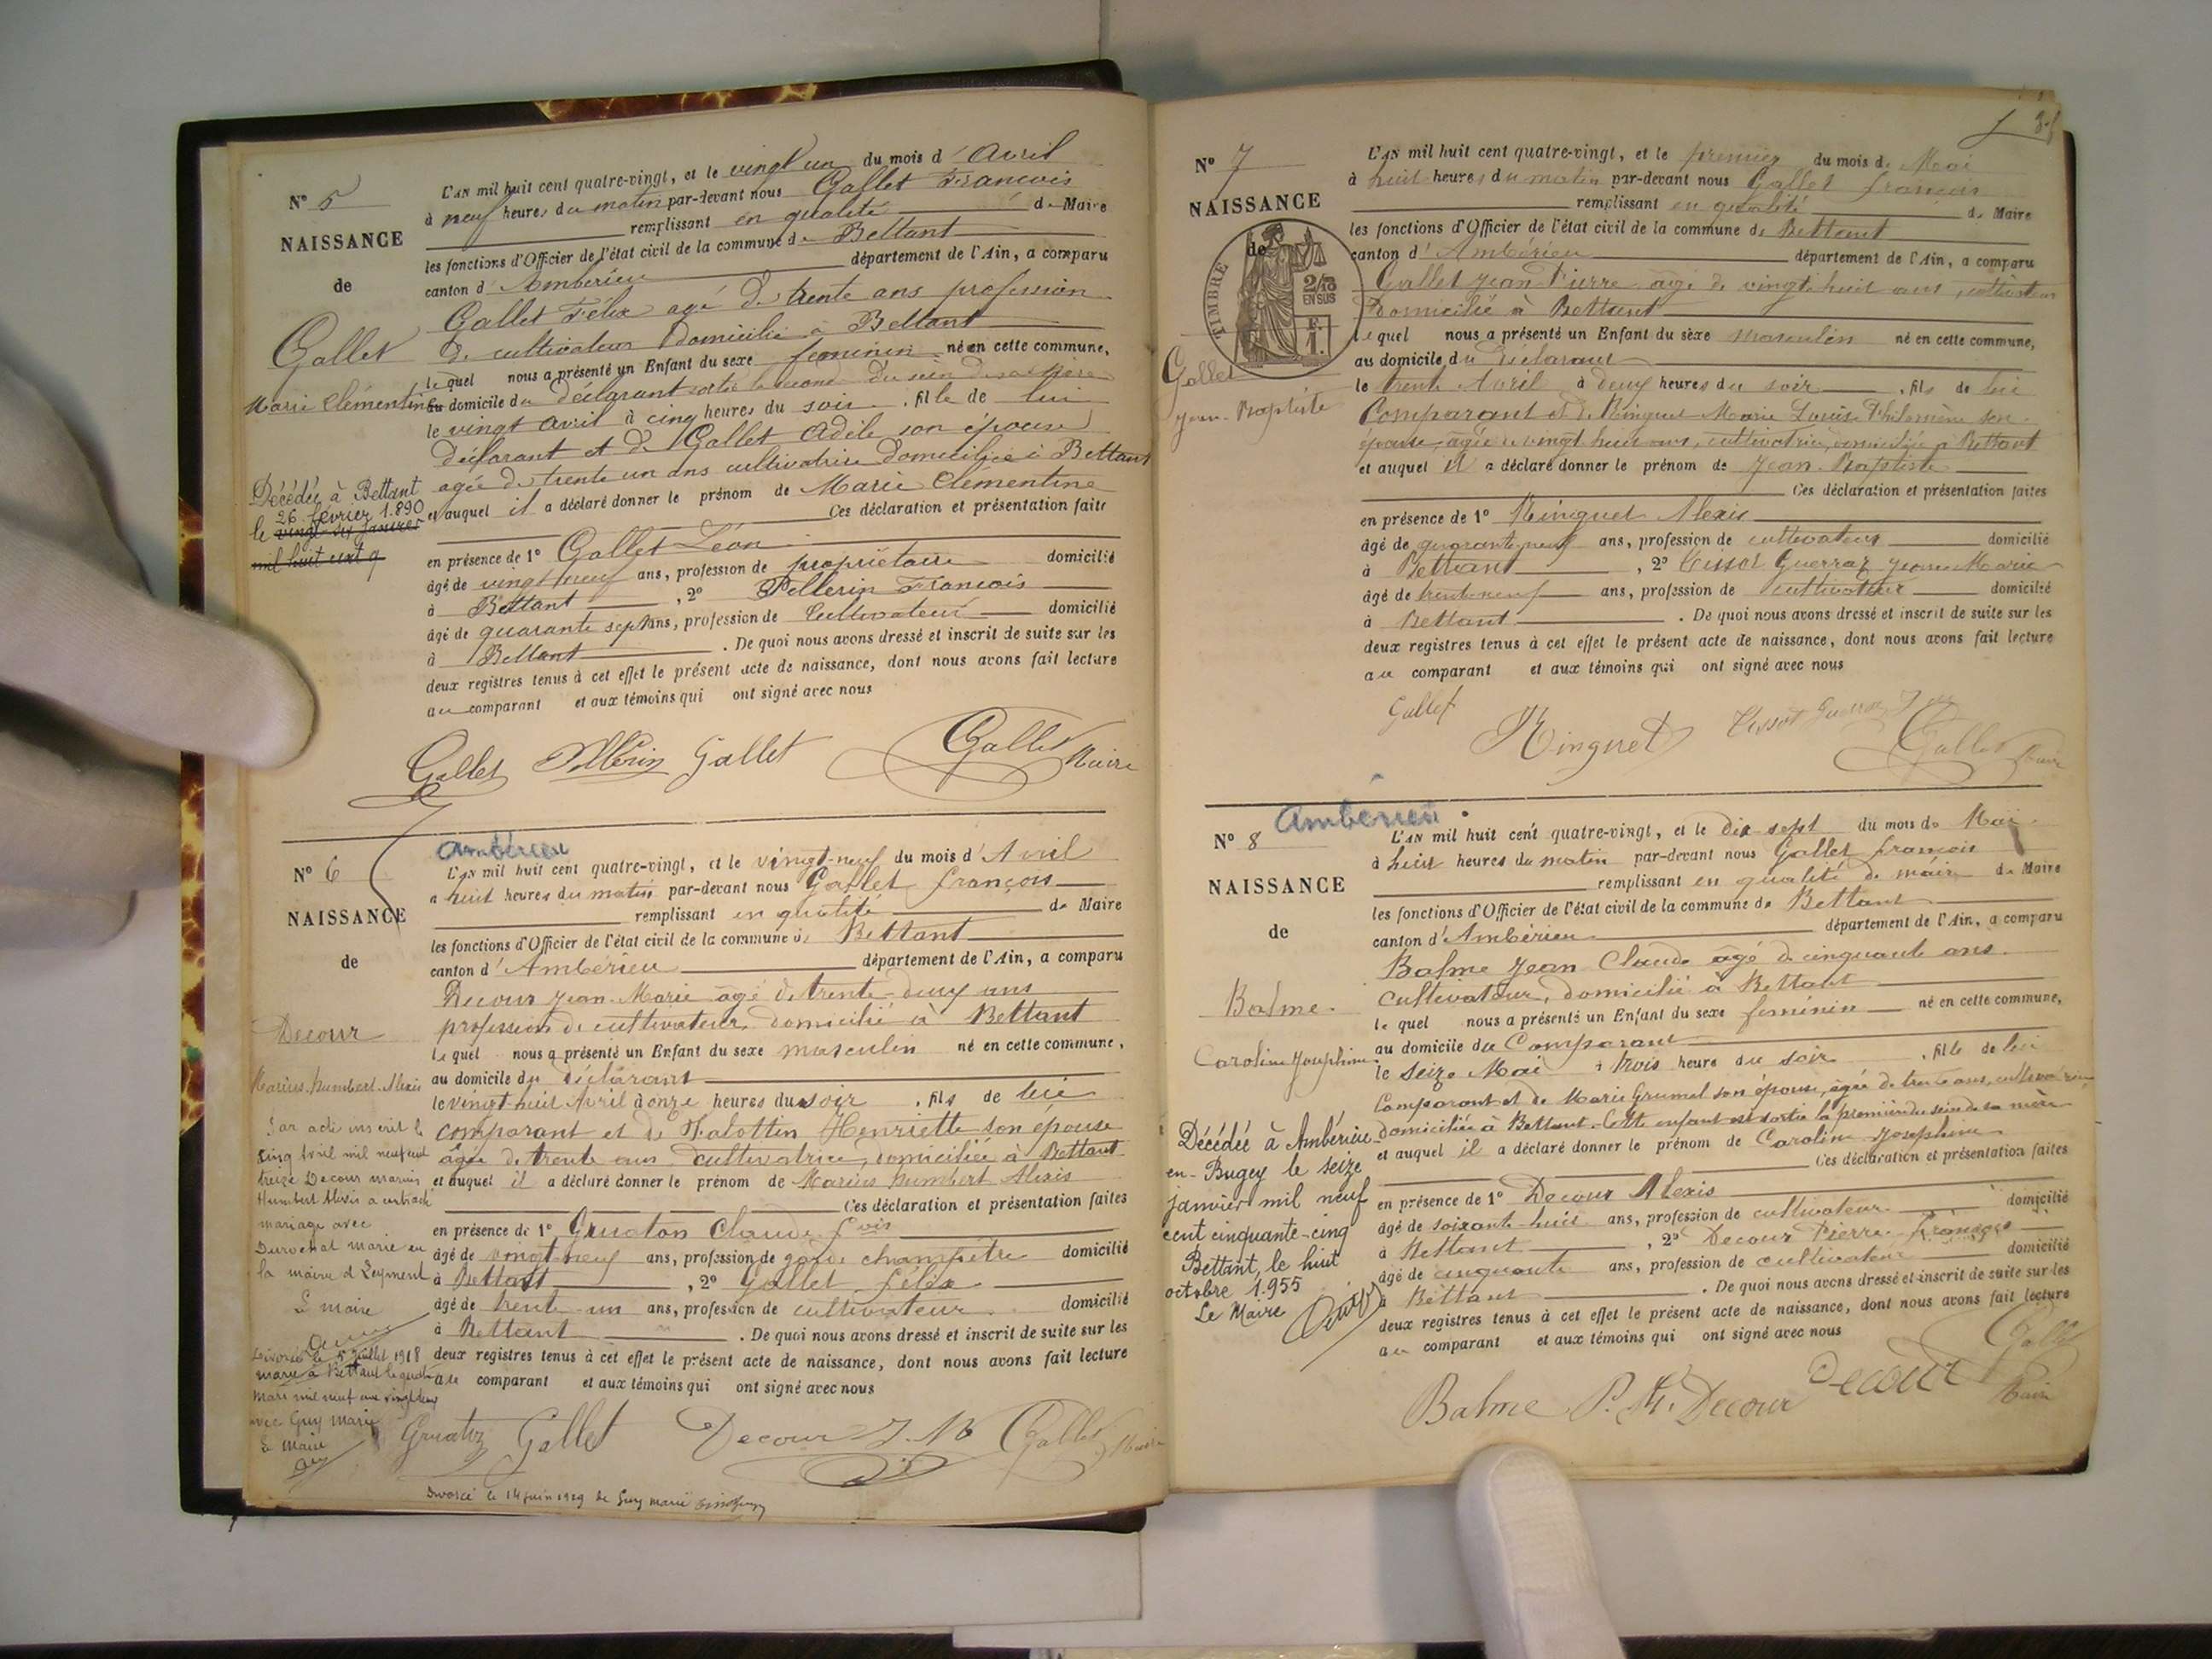 N° 5
NAISSANCE
de
Gallet
Marie Clémentine
Décédée à Bettant
26 février 1.890
le vingt six janvier
mil huit cent q
L'AN mil huit cent quatre-vingt, et le vingt un du mois d'Avril
à neuf heures du matin par-devant nous Gallet François
remplissant en qualité de Maire
les fonctions d'Officier de l'état civil de la commune de Bettant
canton d'Ambérieu département de l'Ain, a comparu
Gallet Félix agé de trente ans profession
de cultivateur domicilié à Bettant
lequel nous a présenté un Enfant du sexe feminin né en cette commune,
au domicile du déclarant sortie la seconde du sein de sa mère
le vingt avril à cinq heures du soir , fille de lui
déclarant et de Gallet Adèle son épouse
agée de trente un ans cultivatrice domiciliée à Bettant
et auquel il a déclaré donner le prénom de Marie Clémentine
Ces déclaration et présentation faite
en présence de 1° Gallet Léon
âgé de vingt neuf ans, profession de propriétaire domicilié
à Bettant , 2° Pellerin François
âgé de quarante sept ans, profession de Cultivateur domicilié
à Bettant . De quoi nous avons dressé et inscrit de suite sur les
deux registres tenus à cet effet le présent acte de naissance, dont nous avons fait lecture
au comparant et aux témoins qui ont signé avec nous
Gallet Pellerin Gallet Gallet Maire
N° 6
NAISSANCE
de
Decour
Marius Humbert Alexis
Par acte inscrit le
cinq avril mil neuf cent
treize Decour marius
Humbert Alexis a contracté
mariage avec
Durochat marie en
la mairie de Leyment
Le maire
Divorcé le 5 juillet 1918
marié à Bettant le quatre
mars mil neuf cent vingt deux
avec Guy marie
Le maire
Ambérieu
L'AN mil huit cent quatre-vingt, et le vingt-neuf du mois d'Avril
à huit heures du matin par-devant nous Gallet françois
remplissant en qualité de Maire
les fonctions d'Officier de l'état civil de la commune de Bettant
canton d'Ambérieu département de l'Ain, a comparu
Decour Jean-Marie âgé de trente-deux ans
profession de cultivateur, domicilié à Bettant
lequel nous a présenté un Enfant du sexe masculin né en cette commune,
au domicile du déclarant
le vingt-huit Avril à onze heures du soir , fils de lui
comparant et de Falottin Henriette son épouse
âgée de trente ans, cultivatrice, domiciliée à Bettant
et auquel il a déclaré donner le prénom de Marius humbert Alexis
Ces déclaration et présentation faites
en présence de 1° Gruaton Claude fois
âgé de vingt-neuf ans, profession de garde champêtre domicilié
à Bettant , 2° Gallet félix
âgé de trente-un ans, profession de cultivateur domicilié
à Bettant . De quoi nous avons dressé et inscrit de suite sur les
deux registres tenus à cet effet le présent acte de naissance, dont nous avons fait lecture
au comparant et aux témoins qui ont signé avec nous
Gruaton Gallet Decour J.M Gallet Maire
Divorcé le 14 juin 1929 de Guy marie
N° 7
NAISSANCE
de
TIMBRE
2/10
EN SUS
F.
1.
Gallet
Jean-Baptiste
L'AN mil huit cent quatre-vingt, et le premier du mois de Mai
à huit heures du matin par-devant nous Gallet françois
remplissant en qualité de Maire
les fonctions d'Officier de l'état civil de la commune de Bettant
canton d'Ambérieu département de l'Ain, a comparu
Gallet Jean-Pierre âgé de vingt-huit ans, cultivateur
Domicilié à Bettant
lequel nous a présenté un Enfant du sexe masculin né en cette commune,
au domicile du déclarant
le trente Avril à deux heures du soir , fils de lui
Comparant et de Ringuet Marie Louise Philomène son
épouse, âgée de vingt huit ans, cultivatrice, domiciliée à Bettant
et auquel il a déclaré donner le prénom de Jean-Baptiste
Ces déclaration et présentation faites
en présence de 1° Ringuet Alexis
âgé de quarante-neuf ans, profession de cultivateur domicilié
à Bettant , 2° Tissot Guerraz Jean Marie
âgé de trente-neuf ans, profession de cultivateur domicilié
à Bettant . De quoi nous avons dressé et inscrit de suite sur les
deux registres tenus à cet effet le présent acte de naissance, dont nous avons fait lecture
au comparant et aux témoins qui ont signé avec nous
Gallet Ringuet Tissot Guerraz Gallet Maire
N° 8
NAISSANCE
de
Balme
Caroline Josephine
Décédée à Ambérieu-
en-Bugey le seize
janvier mil neuf
cent cinquante-cinq
Bettant, le huit
octobre 1.955
Le Maire
Ambérieu
L'AN mil huit cent quatre-vingt, et le dix sept du mois de Mai
à huit heures du matin par-devant nous Gallet françois
remplissant en qualité de maire de Maire
les fonctions d'Officier de l'état civil de la commune de Bettant
canton d'Ambérieu département de l'Ain, a comparu
Balme Jean Claude âgé de cinquante ans
cultivateur, domicilié à Bettant
lequel nous a présenté un Enfant du sexe féminin né en cette commune,
au domicile du Comparant
le seize Mai à trois heure du soir , fille de lui
Comparant et de Marie Grumel son épouse, âgée de trente ans, cultivatrice
domiciliée à Bettant. Cette enfant est sortie la première du sein de sa mère
et auquel il a déclaré donner le prénom de Caroline Josephine
Ces déclaration et présentation faites
en présence de 1° Decour Alexis domicilié
âgé de soixante-huit ans, profession de cultivateur
à Bettant , 2° Decour Pierre François
âgé de cinquante ans, profession de cultivateur domicilié
à Bettant . De quoi nous avons dressé et inscrit de suite sur les
deux registres tenus à cet effet le présent acte de naissance, dont nous avons fait lecture
au comparant et aux témoins qui ont signé avec nous
Balme P. f. Decour Decour Gallet Maire